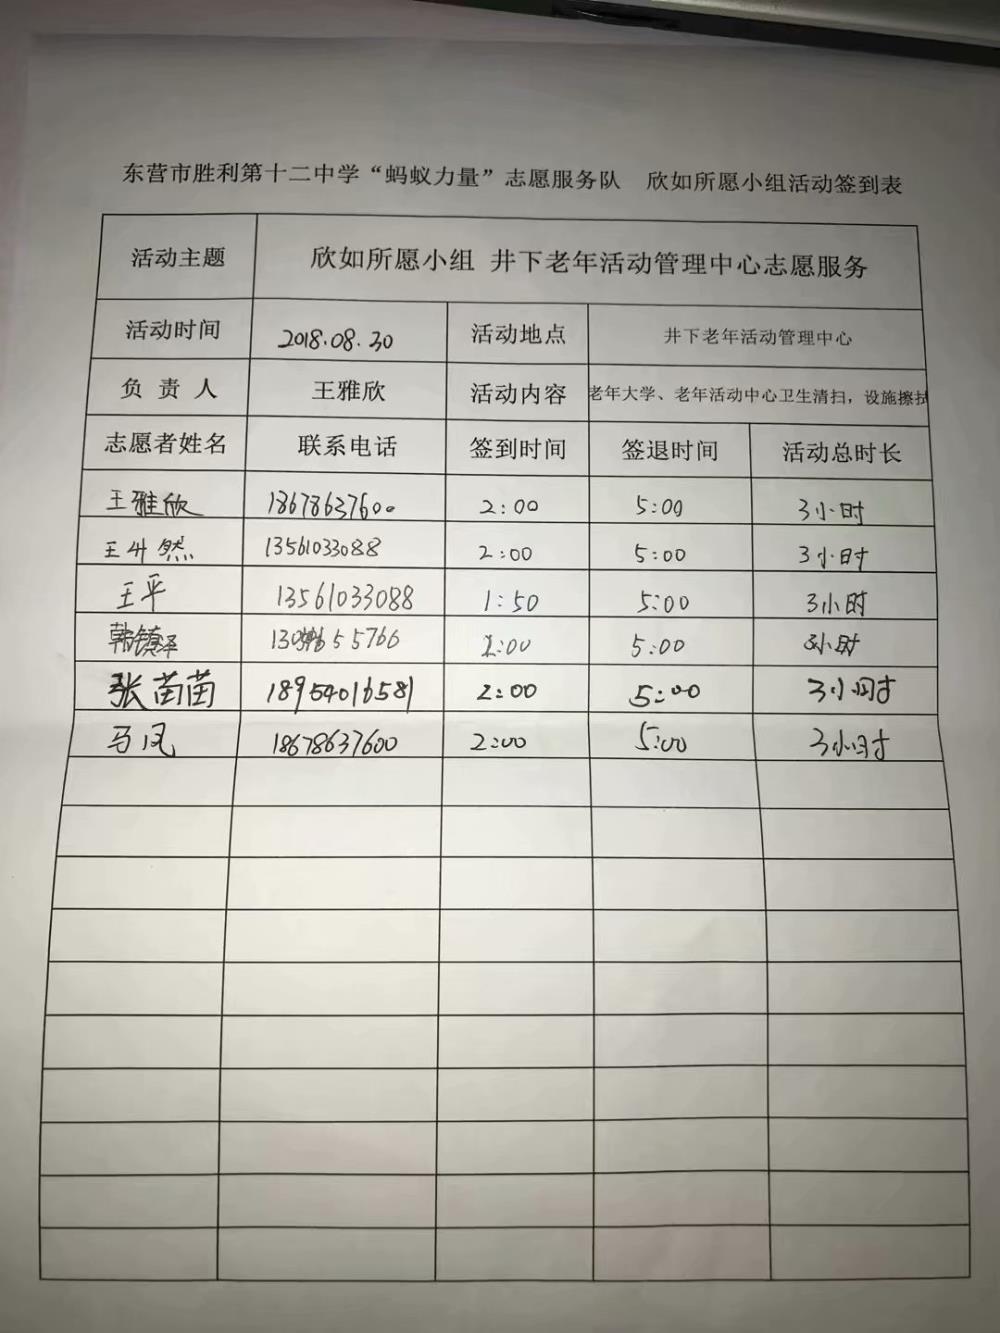 东营市胜利第十二中学“蚂蚁力量”志愿服务队 欣如所愿小组活动签到表
活动主题 欣如所愿小组 井下老年活动管理中心志愿服务
活动时间 2018.08.30 活动地点 井下老年活动管理中心
负责人 王雅欣 活动内容 老年大学、老年活动中心卫生清扫，设施擦拭
志愿者姓名 联系电话 签到时间 签退时间 活动总时长
王雅欣 18678637600 2:00 5:00 3小时
王 然 13561033088 2:00 5:00 3小时
王平 13561033088 1:50 5:00 3小时
韩镇泽 2:00 5:00 3小时
张苗苗 18954016581 2:00 5:00 3小时
马凤 18678637600 2:00 5:00 3小时